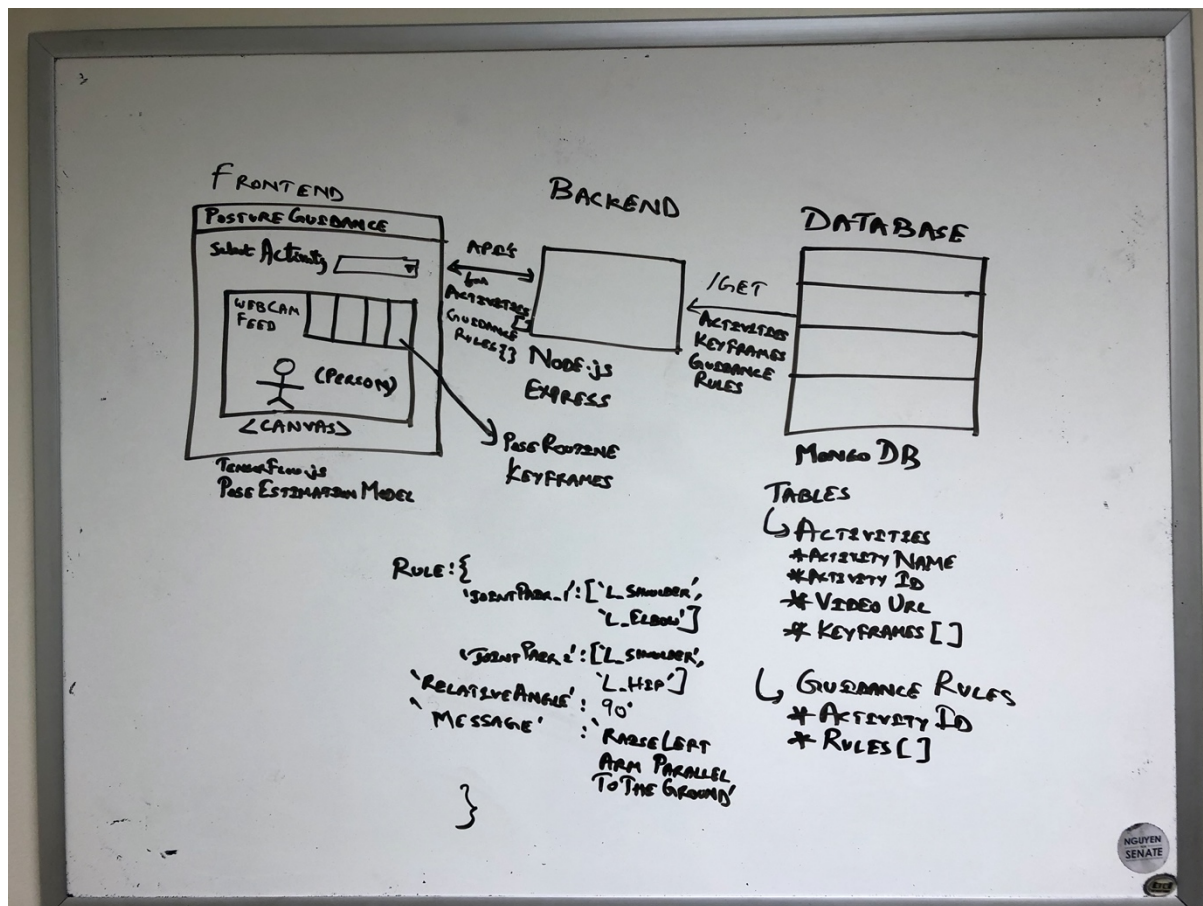 FRONTEND
POSTURE GUIDANCE
Select Activity
WEBCAM
FEED
(PERSON)
<CANVAS>
TensorFlow.js
POSE ESTIMATION MODEL
APIs
for
ACTIVITIES
GUIDANCE
RULES {}
POSE ROUTINE
KEYFRAMES
BACKEND
NODE.js
EXPRESS
/GET
ACTIVITIES
KEYFRAMES
GUIDANCE
RULES
DATABASE
MONGO DB
TABLES
ACTIVITIES
* ACTIVITY NAME
* ACTIVITY ID
* VIDEO URL
* KEYFRAMES [ ]
GUIDANCE RULES
* ACTIVITY ID
* RULES [ ]
RULE: {
'JOINTPAIR_1': ['L_SHOULDER',
'L_ELBOW']
'JOINTPAIR 2': ['L_SHOULDER',
'L_HIP']
'RELATIVEANGLE' : 90°
'MESSAGE' : 'RAISE LEFT
ARM PARALLEL
TO THE GROUND'
}
NGUYEN
SENATE